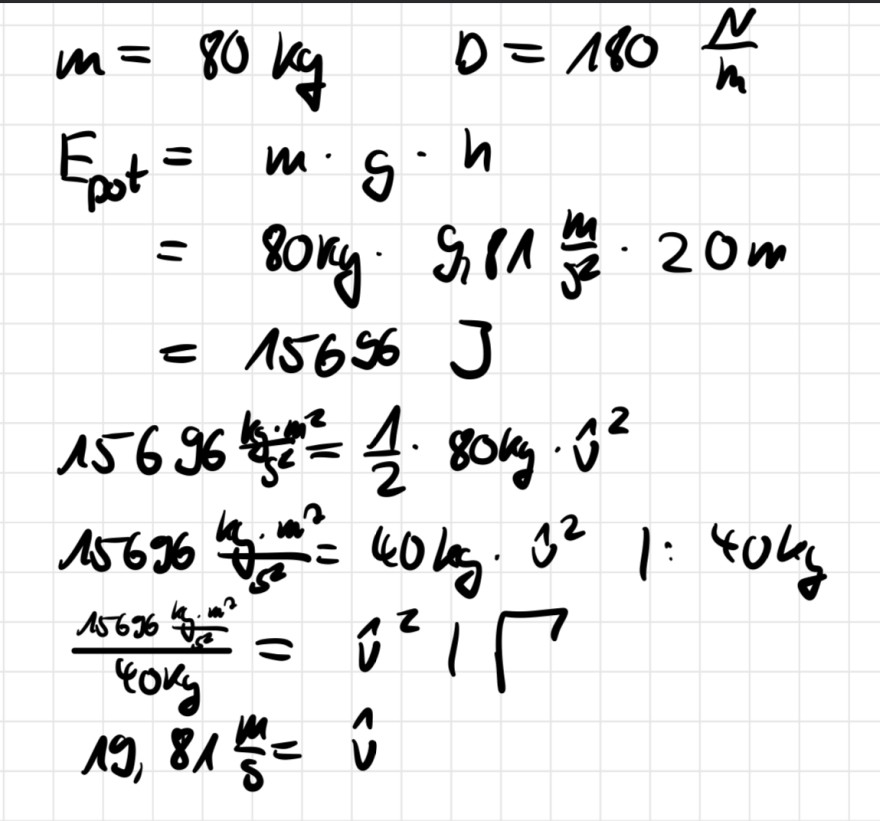 m = 80 kg D = 180 N/m
E_pot = m · g · h
= 80kg · 9,81 m/s² · 20m
= 15696 J
15696 kg·m²/s² = 1/2 · 80kg · v̂²
15696 kg·m²/s² = 40kg · v̂² |: 40kg
15696 kg·m²/s² / 40kg = v̂² | √
19,81 m/s = v̂